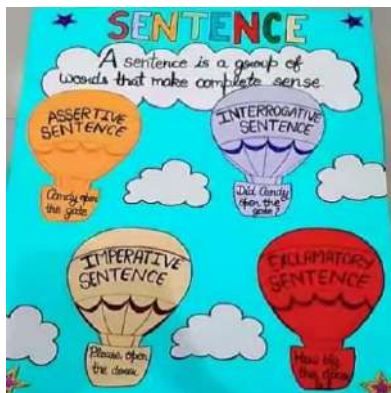 SENTENCE
A sentence is a group of
words that make complete sense.
ASSERTIVE
SENTENCE
Candy open
the gate
INTERROGATIVE
SENTENCE
Did Candy
open the
gate?
IMPERATIVE
SENTENCE
Please open
the door
EXCLAMATORY
SENTENCE
How big
the